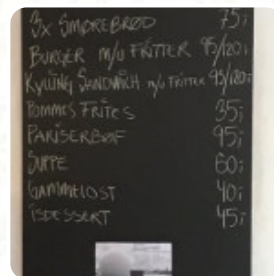 3x SMØREBRØD 75;
BURGER M/U FRITTER 95/120;
KYLLING SANDWICH M/U FRITTER 95/120;
POMMES FRITES 35;
PARISERBØF 95;
SUPPE 60;
GAMMELOST 40;
ISDESSERT 45;